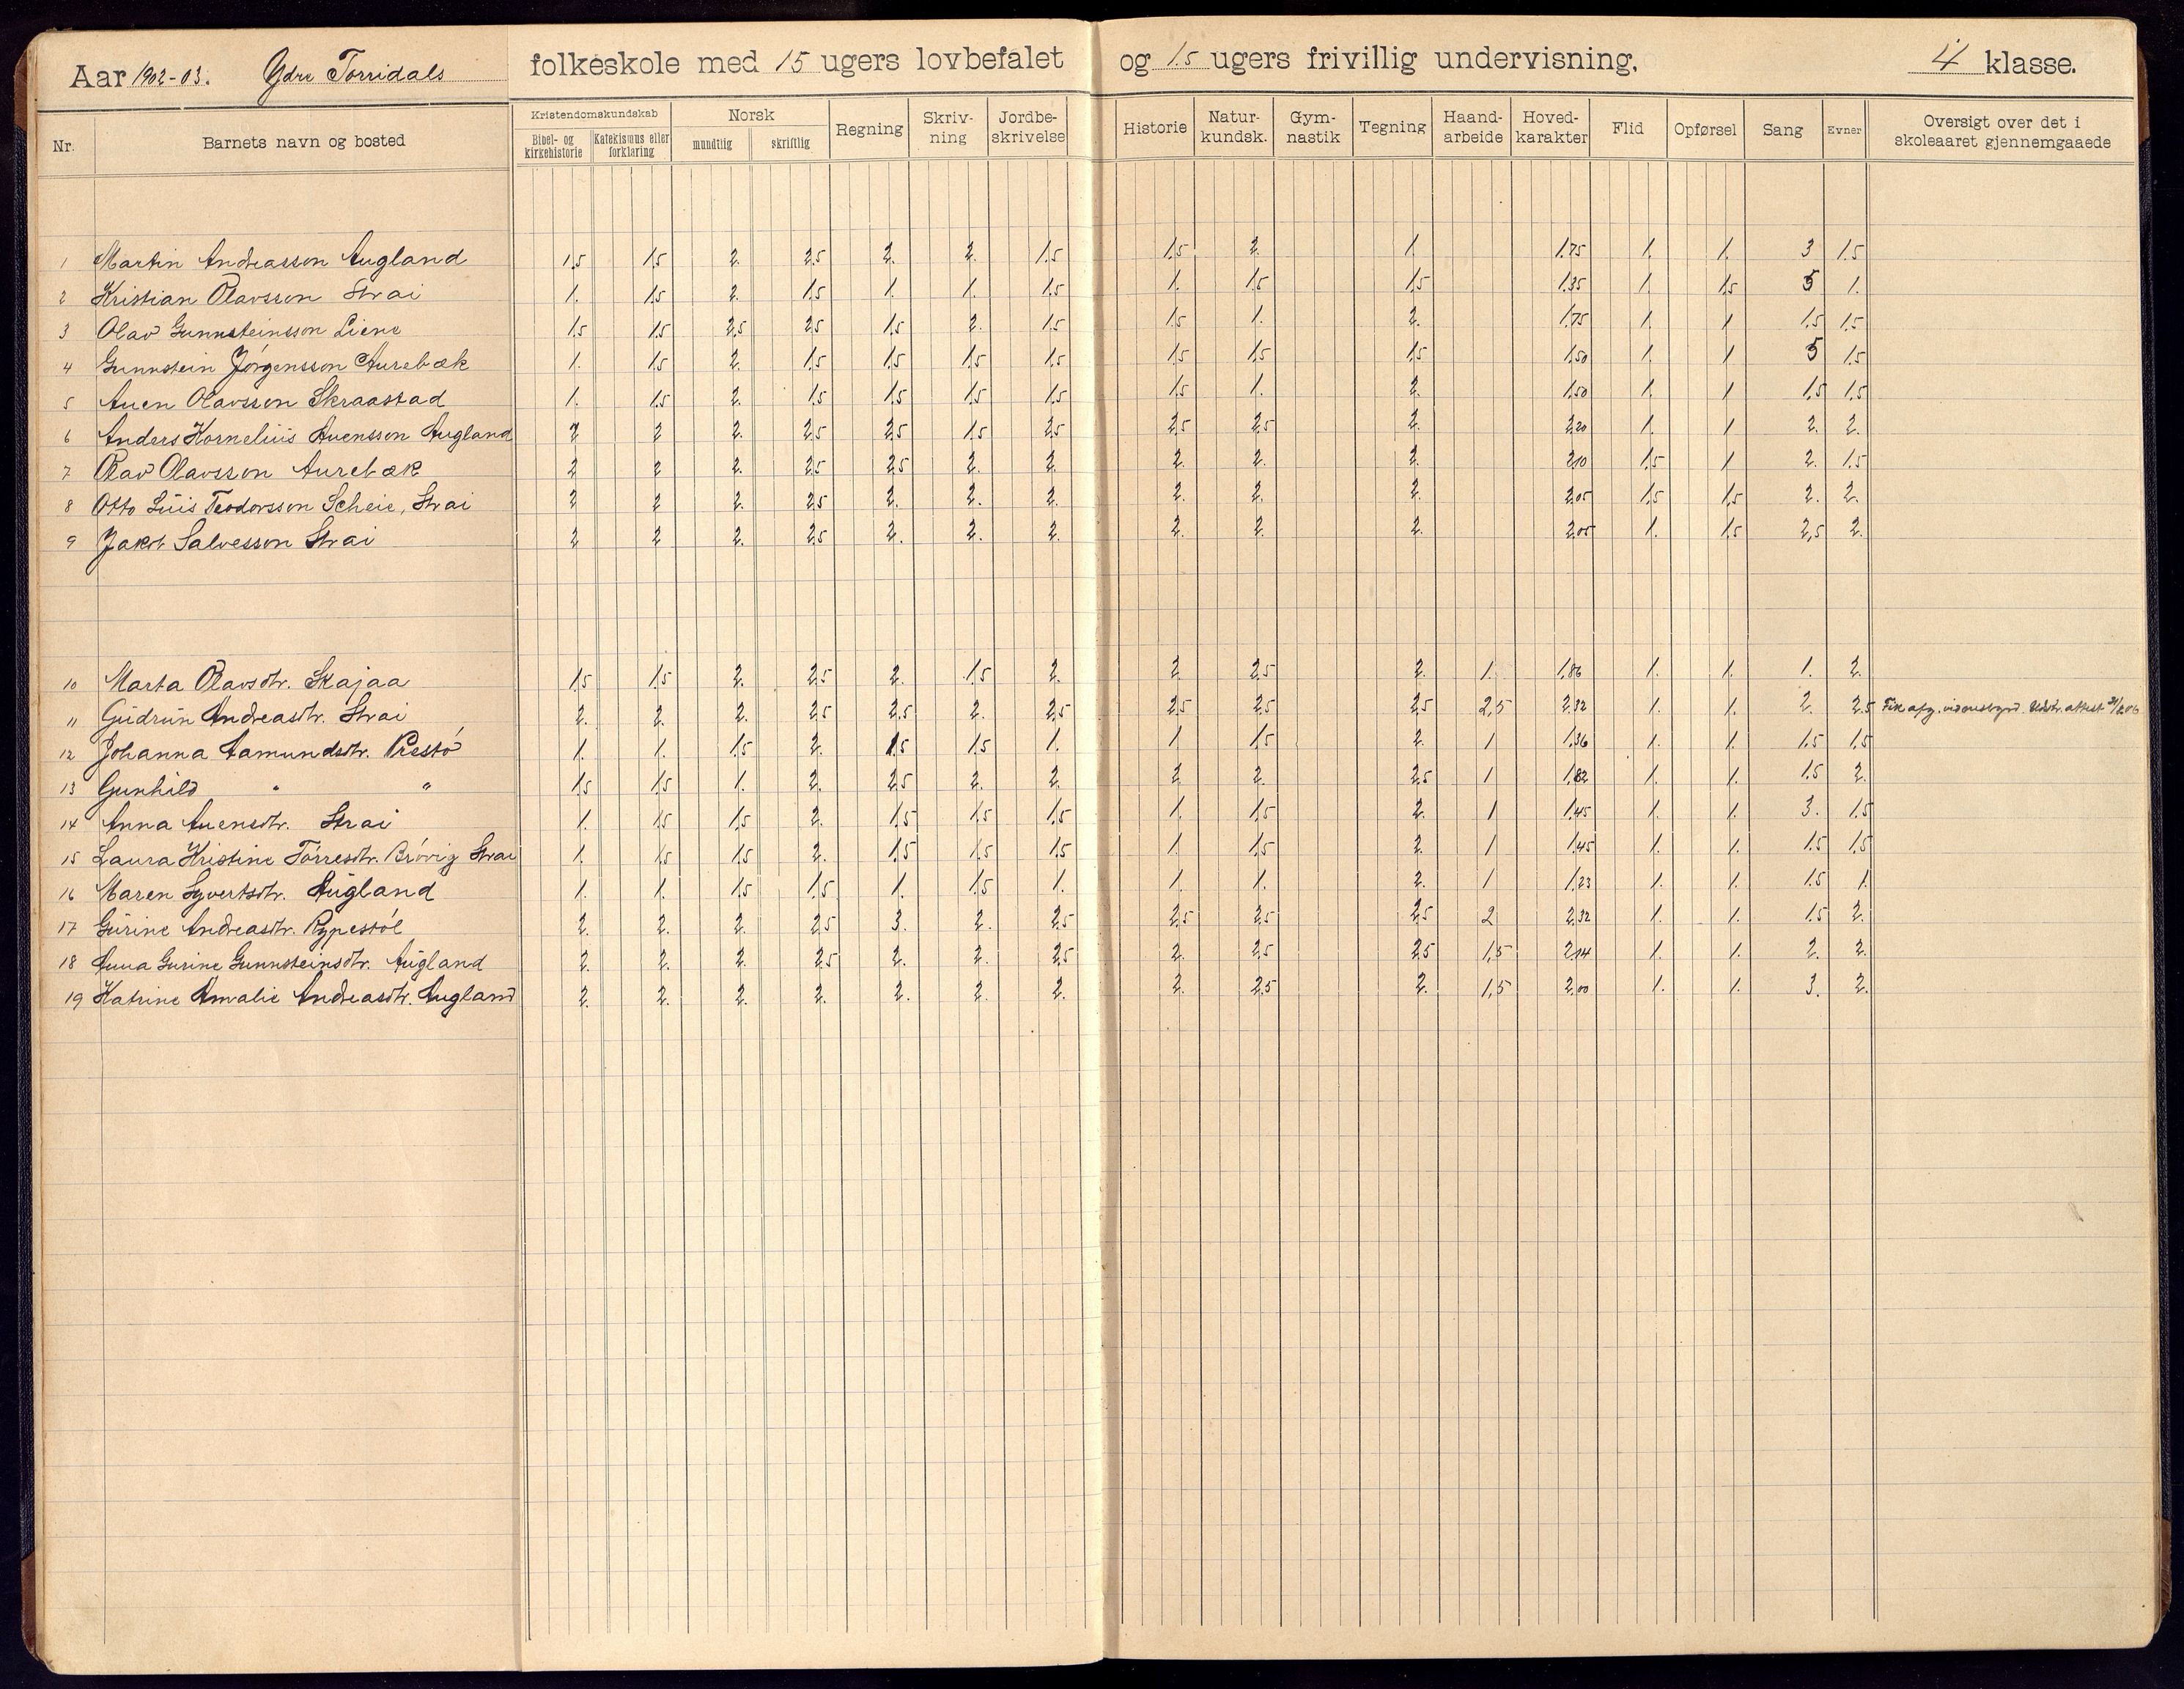 Aar 1902-03. Ydre Torridals folkeskole med 15 ugers lovbefalet og 15 ugers frivillig undervisning, 4 klasse.
Nr. Barnets navn og bosted Kristendomskundskab Bibel- og kirkehistorie Katekismus eller forklaring Norsk mundtlig skriftlig Regning Skriv-ning Jordbe-skrivelse Historie Natur-kundsk. Gym-nastik Tegning Haand-arbeide Hoved-karakter Flid Opførsel Sang Evner Oversigt over det i skoleaaret gjennemgaaede
1 Martin Andreasson Augland 1,5 1,5 2. 2,5 2. 2. 1,5 1,5 2. 1. 1,75 1. 1. 3 1,5
2 Kristian Olavsson Strai 1. 1,5 2. 1,5 1. 1. 1,5 1. 1,5 1,5 1,35 1. 1,5 5 1.
3 Olav Gunnsteinsson Liene 1,5 1,5 2,5 2,5 1,5 2. 1,5 1,5 1. 2. 1,75 1. 1 1,5 1,5
4 Gunnstein Jørgensson Aurebæk 1. 1,5 2. 1,5 1,5 1,5 1,5 1,5 1,5 1,5 1,50 1. 1 5 1,5
5 Auen Olavsson Skraastad 1. 1,5 2. 1,5 1,5 1,5 1,5 1,5 1. 2. 1,50 1. 1 1,5 1,5
6 Anders Kornelius Auensson Augland 2 2 2. 2,5 2,5 1,5 2,5 2,5 2,5 2. 2,20 1. 1 2. 2.
7 Olav Olavsson Aurebæk 2 2 2. 2,5 2,5 2. 2. 2. 2. 2. 2,10 1,5 1 2. 1,5
8 Otto Luis Teodorsson Scheie, Strai 2 2 2. 2,5 2. 2. 2. 2. 2. 2. 2,05 1,5 1,5 2. 2.
9 Jakob Salvesson Strai 2 2 2. 2,5 2. 2. 2. 2. 2. 2. 2,05 1. 1,5 2,5 2.
10 Marta Olavsdtr. Skajaa 1,5 1,5 2. 2,5 2. 1,5 2. 2 2,5 2. 1. 1,86 1. 1. 1. 2.
11 Gudrun Andreasdtr. Strai 2. 2. 2. 2,5 2,5 2. 2,5 2,5 2,5 2,5 2,5 2,32 1. 1. 2. 2,5 Fik afg. vidnesbyrd.
12 Johanna Aamundsdtr. Prestø 1. 1. 1,5 2. 1,5 1,5 1. 1 1,5 2. 1 1,36 1. 1. 1,5 1,5
13 Gunhild " " 1,5 1,5 1. 2. 2,5 2. 2. 2 2. 2,5 1 1,82 1. 1. 1,5 2.
14 Anna Auensdtr. Strai 1. 1,5 1,5 2. 1,5 1,5 1,5 1. 1,5 2. 1 1,45 1. 1. 3. 1,5
15 Laura Kristine Tørresdtr. Brøvig Strai 1. 1,5 1,5 2. 1,5 1,5 1,5 1 1,5 2. 1 1,45 1. 1. 1,5 1,5
16 Maren Syvertsdtr. Augland 1. 1. 1,5 1,5 1. 1,5 1. 1. 1. 2. 1 1,23 1. 1. 1,5 1.
17 Gurine Andreasdtr. Rypestøl 2. 2. 2. 2,5 3. 2. 2,5 2,5 2,5 2,5 2 2,32 1. 1. 1,5 2.
18 Anna Gurine Gunnsteinsdtr. Augland 2. 2. 2. 2,5 2. 2. 2,5 2. 2,5 2,5 1,5 2,14 1. 1. 2. 2.
19 Katrine Amalie Andreasdtr. Augland 2. 2. 2. 2. 2. 2. 2. 2. 2,5 2. 1,5 2,00 1. 1. 3. 2.